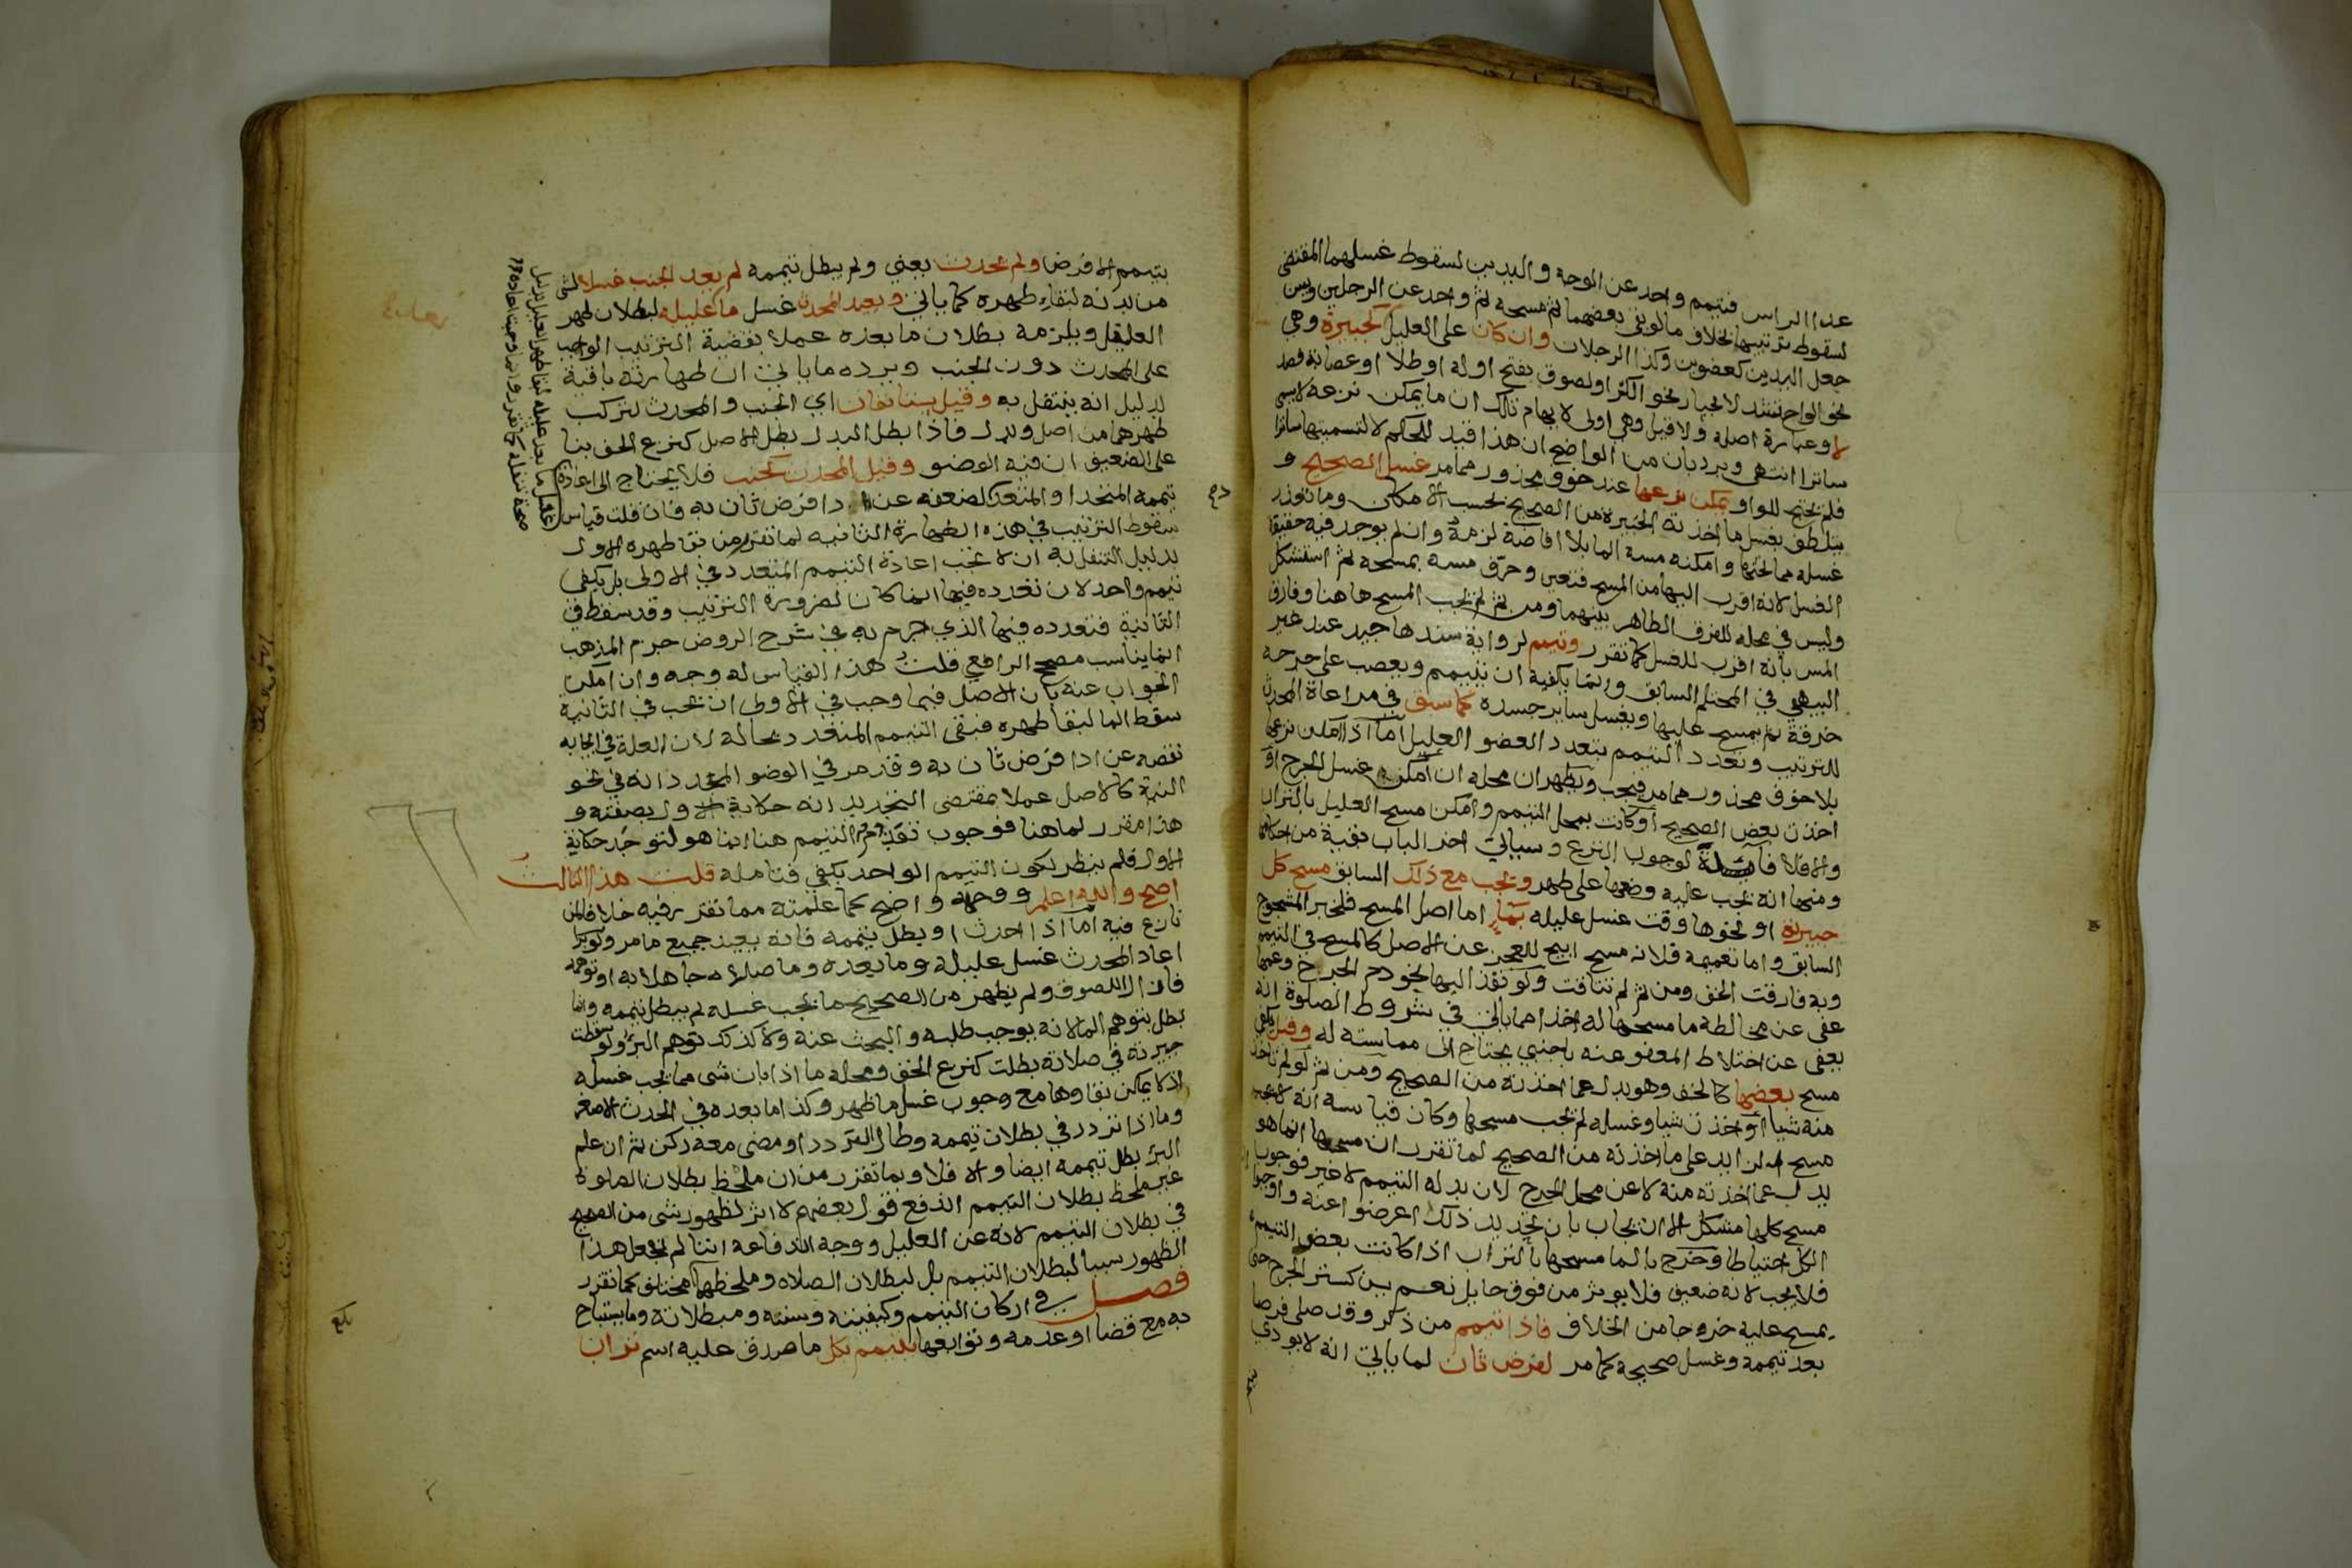 عدا الراس فتيمم واحد عن الوجه واليدين لسقوط غسلهما المقتضي
لسقوط ترتيبهما بخلاف ما لو بقي بعضهما ثم مسحه ثم واحد عن الرجلين ويسن
جعل اليدين كعضوين وكذا الرجلان وان كان على العليل كجبيرة وهي
نحو الواح تشد لانجبار نحو الكسر او لصوق بفتح اوله او طلا او عصابة فصد
لا وعبارة اصله ولا قيل وهي اولى لايهام تلك ان ما يمكن نزعه لا يسمى
ساترا انتهى ويرد بان من الواضح ان هذا قيد للحكم لا لتسميتها ساترا
فلم يحتج للواو يمكن نزعها عند خوف محذور مما مر غسل الصحيح و
يتلطف بغسل ما اخذته الجبيرة من الصحيح بحسب الامكان وما تعذر
غسله مما تحتها وامكنه مسه الما بلا افاضة لزمه وان لم يوجد فيه حقيقة
الغسل لانه اقرب اليها من المسح فتعين وحرق مسه بمسحه ثم استشكل
وليس في محله للفرق الظاهر بينهما ومن ثم لم يجب المسح هاهنا وفارق
المس بانه اقرب للغسل كما تقرر وتيمم لرواية سندها جيد عند غير
البيهقي في المحتلم السابق وانما يكفيه ان يتيمم ويعصب على جرحه
خرقة ثم يمسح عليها ويغسل ساير جسده كما سبق في مراعاة المحدث
للترتيب وتعدد التيمم بتعدد العضو العليل اما اذا امكن نزعها
بلا خوف محذور مما مر فيجب ويظهر ان محله ان امكن غسل الجرح او
اخذت بعض الصحيح او كانت بمحل التيمم وامكن مسح العليل بالتراب
والا فلا فايدة لوجوب النزع وسياتي اخر الباب بقية من احكامها
ومنها انه يجب عليه وضعها على طهر ويجب مع ذلك السابق مسح كل
جبيرته او نحوها وقت غسل عليله بماء اما اصل المسح فلخبر المشجوج
السابق واما تعميمه فلانه مسح ابيح للعجز عن الاصل كالمسح في التيمم
وبه فارقت الخف ومن ثم لم تتاقت ولو نفذ اليها نحو دم الجرح وعمها
عفي عن مخالطة ما مسحها له اخذا مما ياتي في شروط الصلوة انه
يعفى عن اختلاط المعفو عنه باجنبي يحتاج الى مماسته له وقيل يكفي
مسح بعضها كالخف وهو بدل عما اخذته من الصحيح ومن ثم لو لم تاخذ
منه شيا او اخذت شيا وغسله لم يجب مسحها وكان قياسه انه لا يجب
مسح الزايد على ما اخذته من الصحيح لما تقرر ان مسحها انما هو
بدل عما اخذته منه لا عن محل الجرح لان بدله التيمم لا غير فوجوب
مسح كلها مشكل الا ان يجاب بان تحديد ذلك اعرضوا عنه واوجبوا
الكل احتياطا وخرج بالما مسحها بالتراب اذا كانت بعض التيمم
فلا يجب لانه ضعيف فلا يوثر من فوق حايل نعم يسن كستر الجرح حتى
يمسح عليه خروجا من الخلاف فاذا تيمم من ذكر وقد صلى فرضا
بعد تيممه وغسل صحيحه كما مر لفرض ثان لما ياتي انه لا يودي
يتيمم الا فرضا ولم يحدث يعني ولم يبطل تيممه لم يعد الجنب غسلا لشي
من بدنه لبقاء طهره كما ياتي ويعيد المحدث غسل ما عليله لبطلان طهر
العليل ويلزمه بطلان ما بعده عملا بقضية الترتيب الواجب
على المحدث دون الجنب ويرده ما ياتي ان طهارته باقية
بدليل انه يتنفل به وقيل يستانفان اي الجنب والمحدث لتركب
طهرهما من اصل وبدل فاذا بطل البدل بطل الاصل كنزع الخف بنا
على الضعيف ان فيه الوضو وقيل المحدث كجنب فلا يحتاج الى اعادة
تيممه المتحد او المتعدد لضعفه عن ادا فرض ثان به فان قلت قياس
سقوط الترتيب في هذه الطهارة الثانية لما تقرر من بقا طهره الاول
بدليل التنفل به ان لا تجب اعادة التيمم المتعدد في الاولى بل يكفي
تيمم واحد لان تعدده فيها انما كان لضرورة الترتيب وقد سقط في
الثانية فتعدده فيها الذي جزم به في شرح الروض جزم المذهب
انما يناسب مصحح الرافعي قلت هذا القياس له وجه وان امكن
الجواب عنه بان الاصل فيما وجب في الاولى ان يجب في الثانية
سقط الما لبقا طهره فبقي التيمم المتعدد بحاله لان العلة في ايجابه
نقصه عن ادا فرض ثان به وقد مر في الوضو المجدد انه في نحو
النية كالاصل عملا بمقتضى التجديد انه حكاية الاول بصفته و
هذا مقرر لما هنا فوجوب تعدد التيمم هنا انما هو لتوجد حكاية
الاول فلم ينظر لكون التيمم الواحد يكفي فتامله قلت هذا الثالث
اصح والله اعلم ووجهه واضح كما علمته مما تقرر فيه خلافا لمن
نازع فيه اما اذا احدث او بطل تيممه فانه يعيد جميع ما مر ولو برا
اعاد المحدث غسل عليله وما بعده وما صلاه جاهلا به او توهمه
فازال اللصوق ولم يظهر من الصحيح ما يجب غسله لم يبطل تيممه وانما
بطل بتوهم الما لانه يوجب طلبه والبحث عنه ولا كذلك توهم البرؤ ولو سقطت
جبيرته في صلاته بطلت كنزع الخف ومحله ما اذا بان شي مما يجب غسله
اذ لا يمكن بقاوها مع وجوب غسل ما ظهر وكذا ما بعده في الحدث الاصغر
وما اذا تردد في بطلان تيممه وطال التردد او مضى معه ركن ثم ان علم
البرؤ بطل تيممه ايضا والا فلا وبما تقرر من ان ملحظ بطلان الصلوة
غير ملحظ بطلان التيمم اندفع قول بعضهم لا اثر لظهور شي من الصحيح
في بطلان التيمم لانه عن العليل ووجه اندفاعه اننا لم نجعل هذا
الظهور سببا لبطلان التيمم بل لبطلان الصلاه وملحظهما مختلف كما تقرر
فصل في اركان التيمم وكيفيته وسننه ومبطلاته وما يستباح
به مع قضا او عدمه وتوابعها يتيمم بكل ما صدق عليه اسم تراب
بلغ